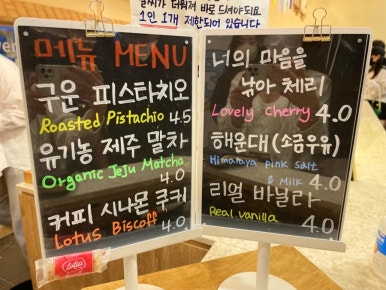 날씨가 더워져 바로 드셔야되요
1인 1개 제한되어 있습니다
메뉴 MENU
구운 피스타치오
Roasted Pistachio 4.5
유기농 제주 말차
Organic Jeju Matcha
4.0
커피 시나몬 쿠키
Lotus Biscoff 4.0
Lotus
너의 마음을
낚아 체리
Lovely Cherry 4.0
해운대 (소금우유)
Himalaya Pink Salt
& Milk 4.0
리얼 바닐라
Real vanilla 4.0